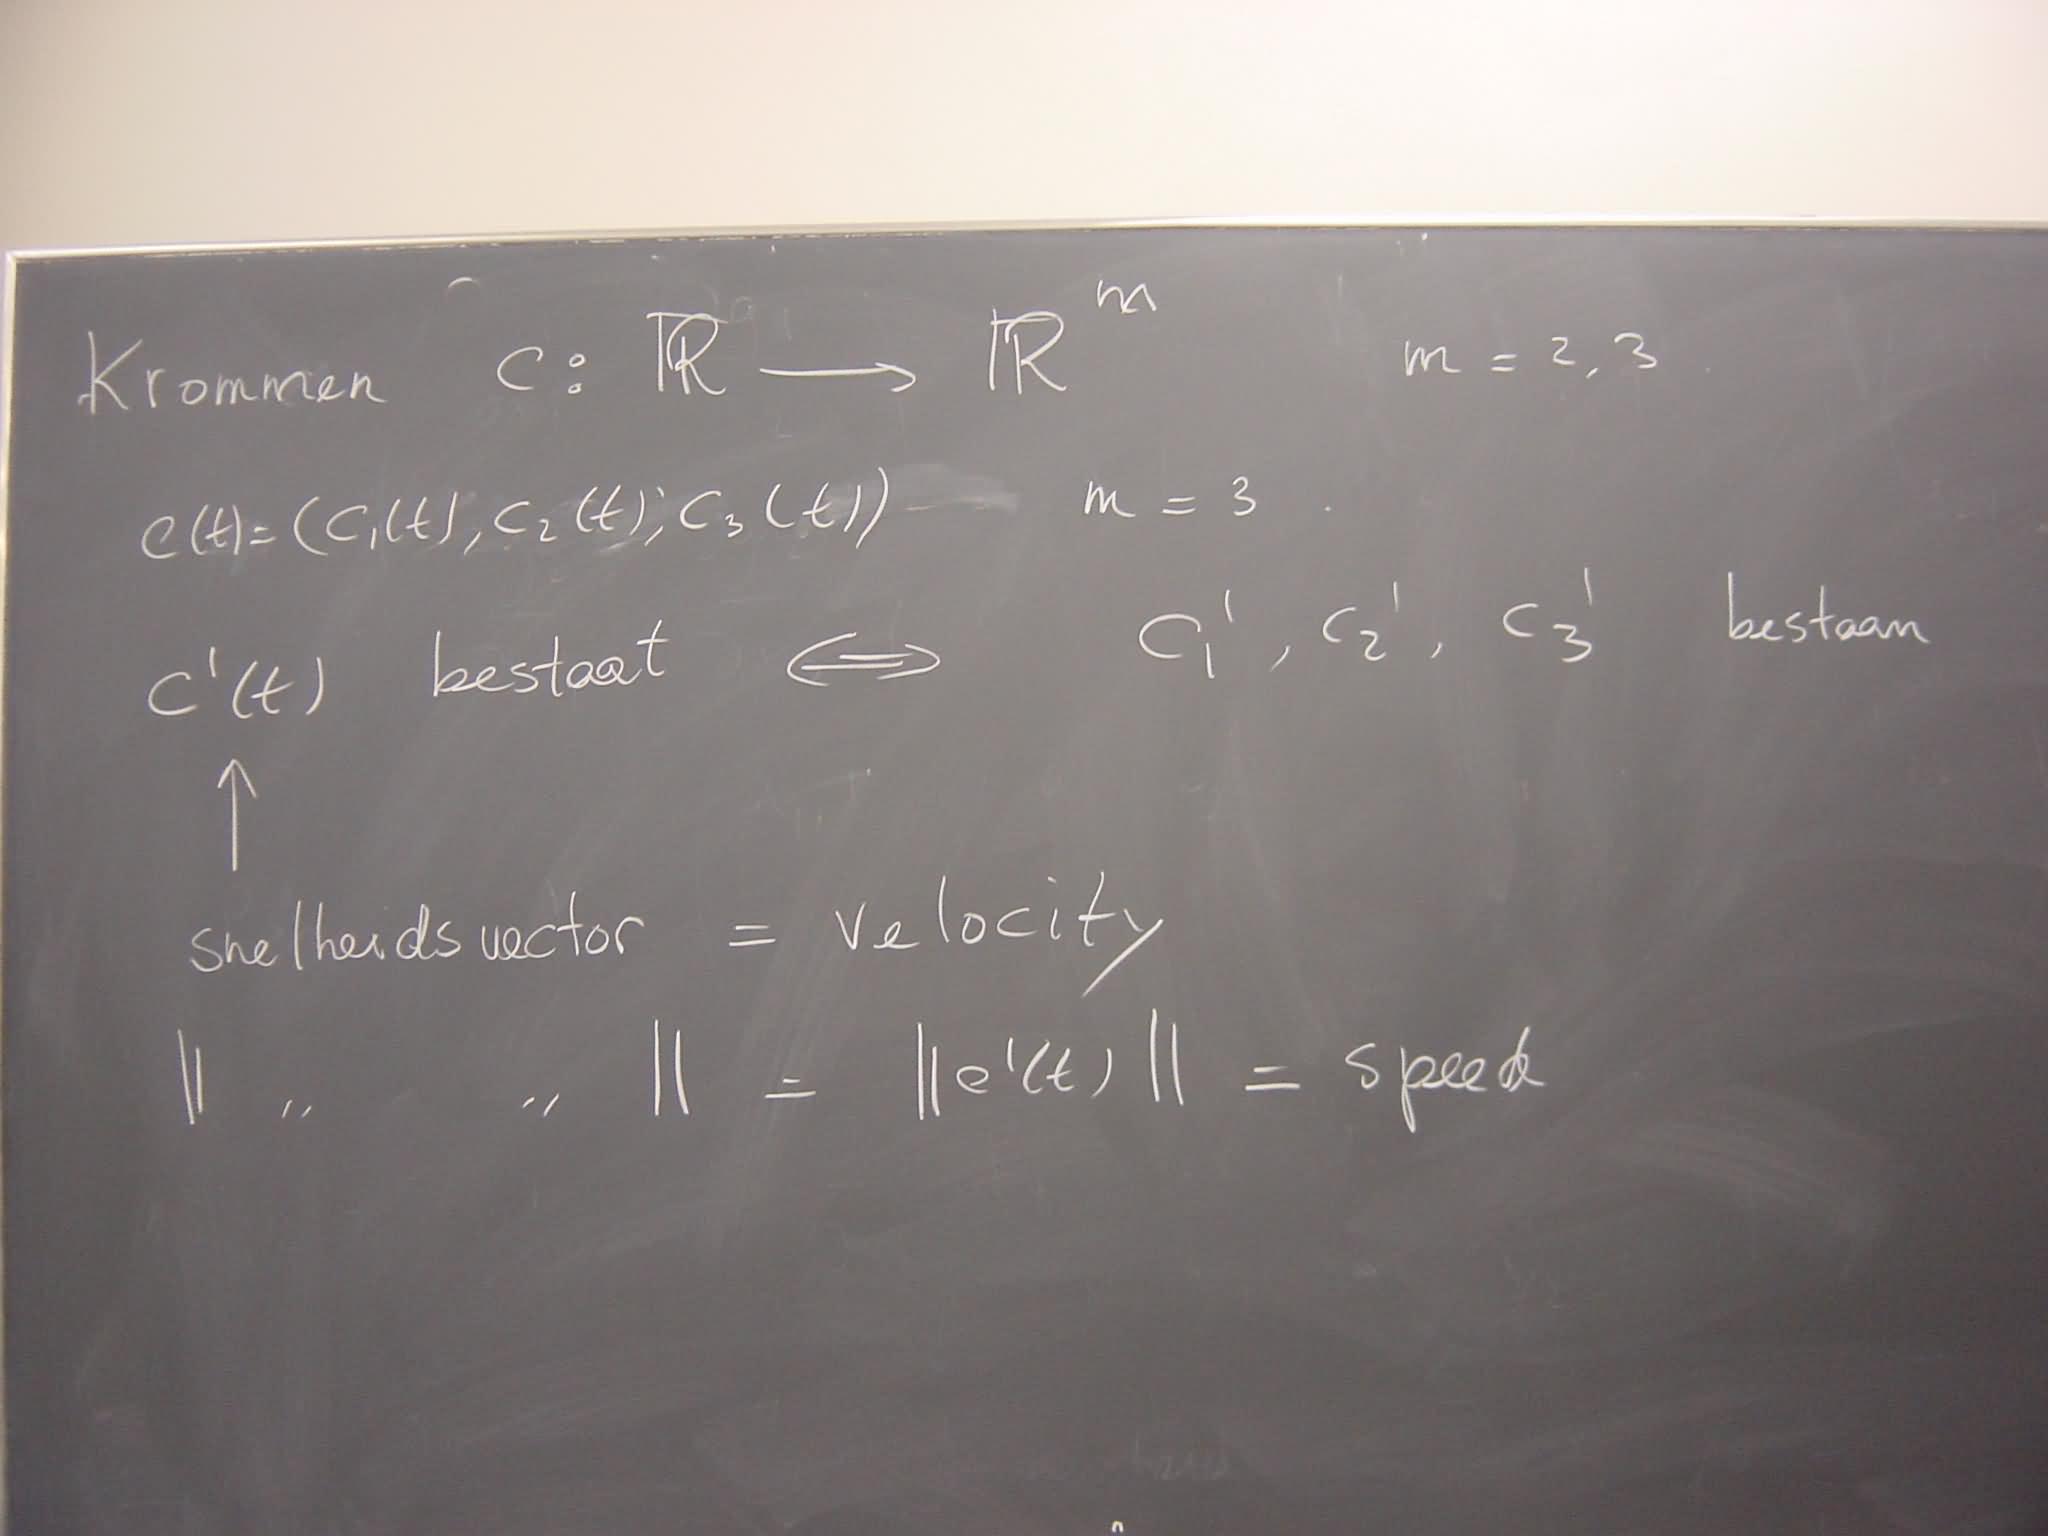 Krommen c: ℝ ⟶ ℝ^m m = 2, 3.
c(t) = (c₁(t), c₂(t), c₃(t)) m = 3.
c'(t) bestaat ⟺ c₁', c₂', c₃' bestaan
↑
snelheidsvector = velocity
‖ ,, ,, ‖ = ‖c'(t)‖ = speed